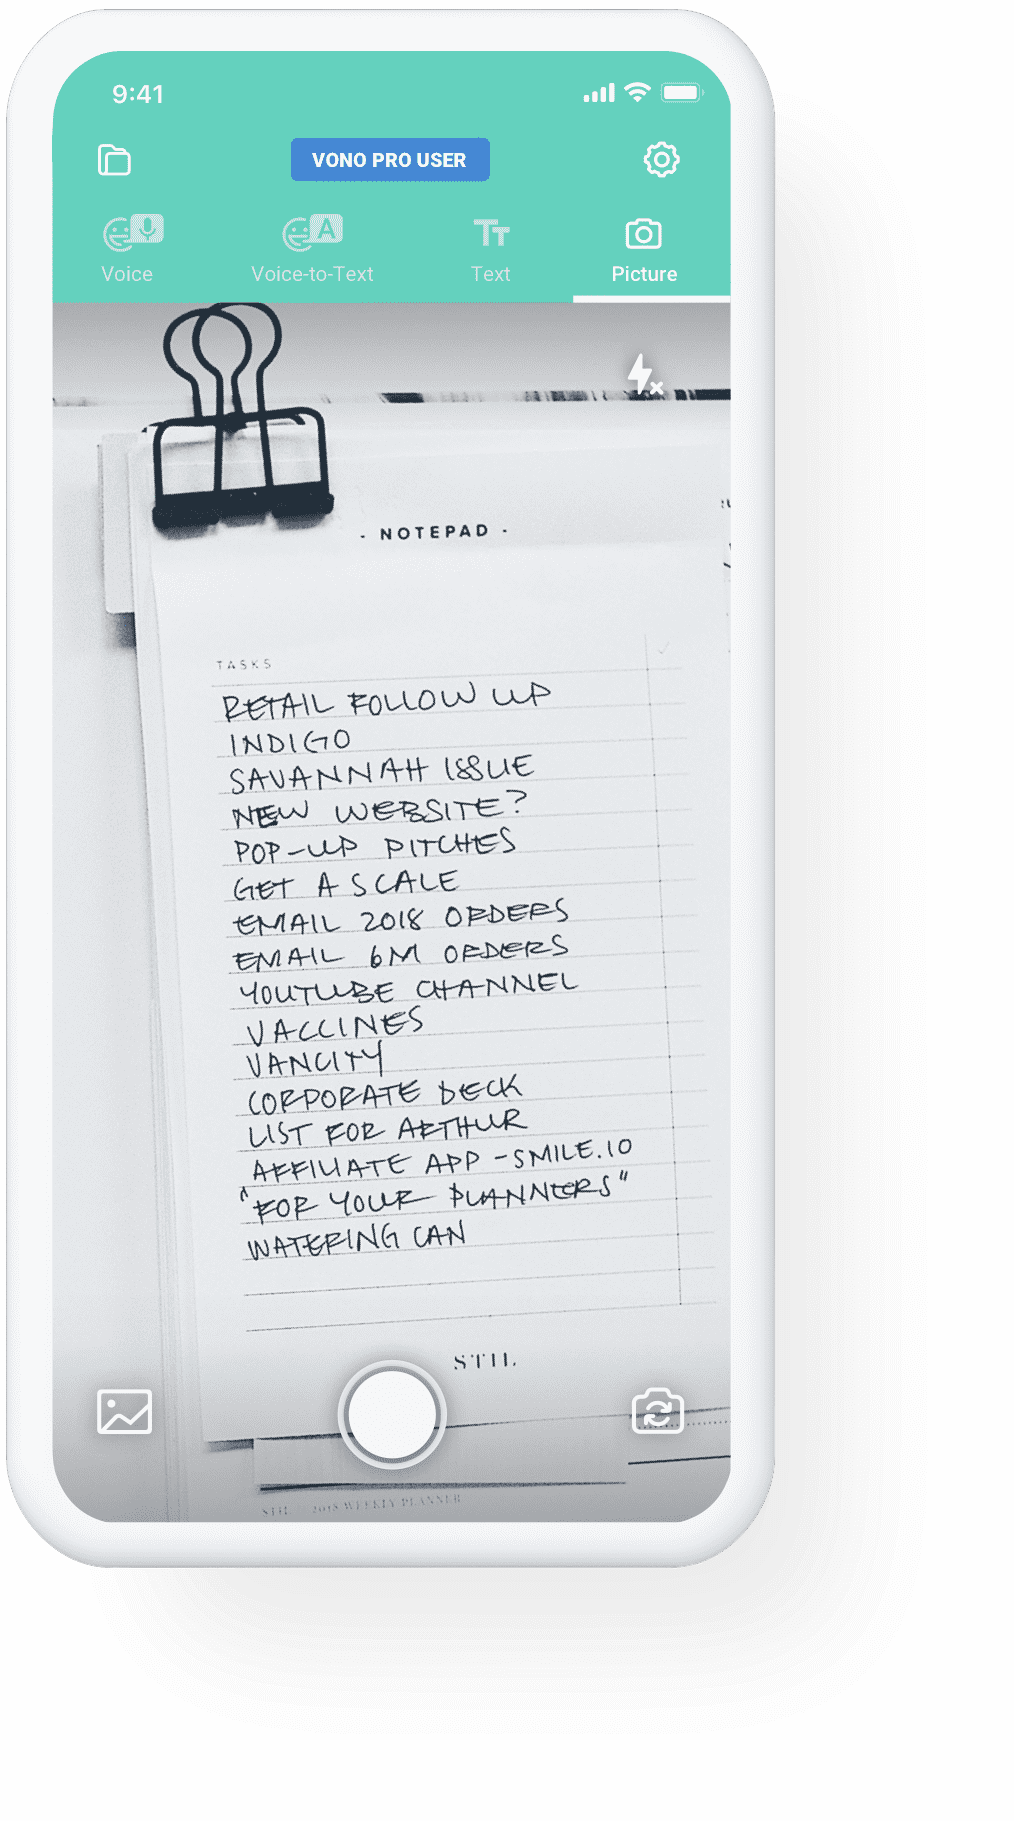 9:41
VONO PRO USER
A
Voice
Voice-to-Text
Tт
Text
Picture
- NOTEPAD -
TASKS
RETAIL FOLLOW UP
INDIGO
SAVANNAH ISSUE
NEW WEBSITE?
POP-UP PITCHES
GET A SCALE
EMAIL 2018 ORDERS
EMAIL 6M ORDERS
YOUTUBE CHANNEL
VACCINES
VANCITY
CORPORATE DECK
LIST FOR ARTHUR
AFFILIATE APP - SMILE.IO
"FOR YOUR PLANNERS"
WATERING CAN
STIL
STIL 2018 WEEKLY PLANNER